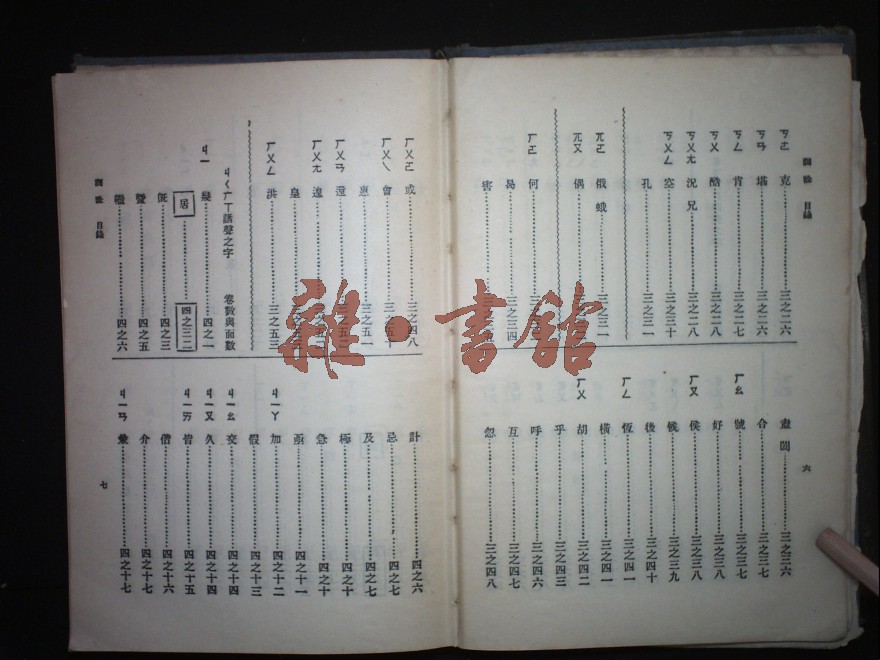 詞詮 目錄
ㄎㄜ 克 三之二六
ㄎㄢ 堪 三之二六
ㄎㄥ 肯 三之二七
ㄎㄨ 酷 三之二八
ㄎㄨㄤ 況兄 三之二八
ㄎㄨㄥ 空 三之三十
孔 三之三一
ㄫㄜ 俄蛾 三之三一
ㄫㄡ 偶
ㄏㄜ 何
曷 三之三四
害
盍闔 三之三六
合 三之三七
ㄏㄠ 號 三之三七
好 三之三八
ㄏㄡ 侯 三之三八
三之三九
後 三之四十
ㄏㄥ 恆 三之四一
橫 三之四一
ㄏㄨ 胡 三之四二
乎 三之四三
呼 三之四六
互 三之四七
忽 三之四八
六
ㄏㄨㄛ 或 三之四八
ㄏㄨㄟ 會 三之五十
惠 三之五一
ㄏㄨㄢ 還 三之五二
ㄏㄨㄤ 遑
皇
ㄏㄨㄥ 洪 三之五三
ㄐㄑㄏㄒ諸聲之字 卷數與面數
ㄐㄧ 四之一
居 四之三二
旣 四之三
暨 四之五
四之六
計 四之六
忌 四之七
及 四之七
極 四之十
急 四之十
亟 四之十一
ㄐㄧㄚ 加 四之十二
假 四之十三
ㄐㄧㄠ 交 四之十四
ㄐㄧㄡ 久 四之十四
ㄐㄧㄞ 皆 四之十五
偕 四之十六
介 四之十七
ㄐㄧㄢ 兼 四之十七
詞詮 目錄
七
雜·書館